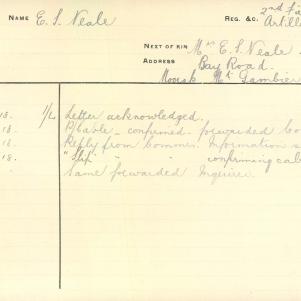 NAME E. S. Neale REG. &C. 2nd Fa
Artille
NEXT OF KIN Mrs E. S. Neale
ADDRESS Bay Road.
Moorak Mt. Gambier
18. 1/4 Letter acknowledged.
18. confirmed - forwarded
18. Reply from Commes. Information
18. "Slip" " " confirming cab
" Same forwarded Inquirer